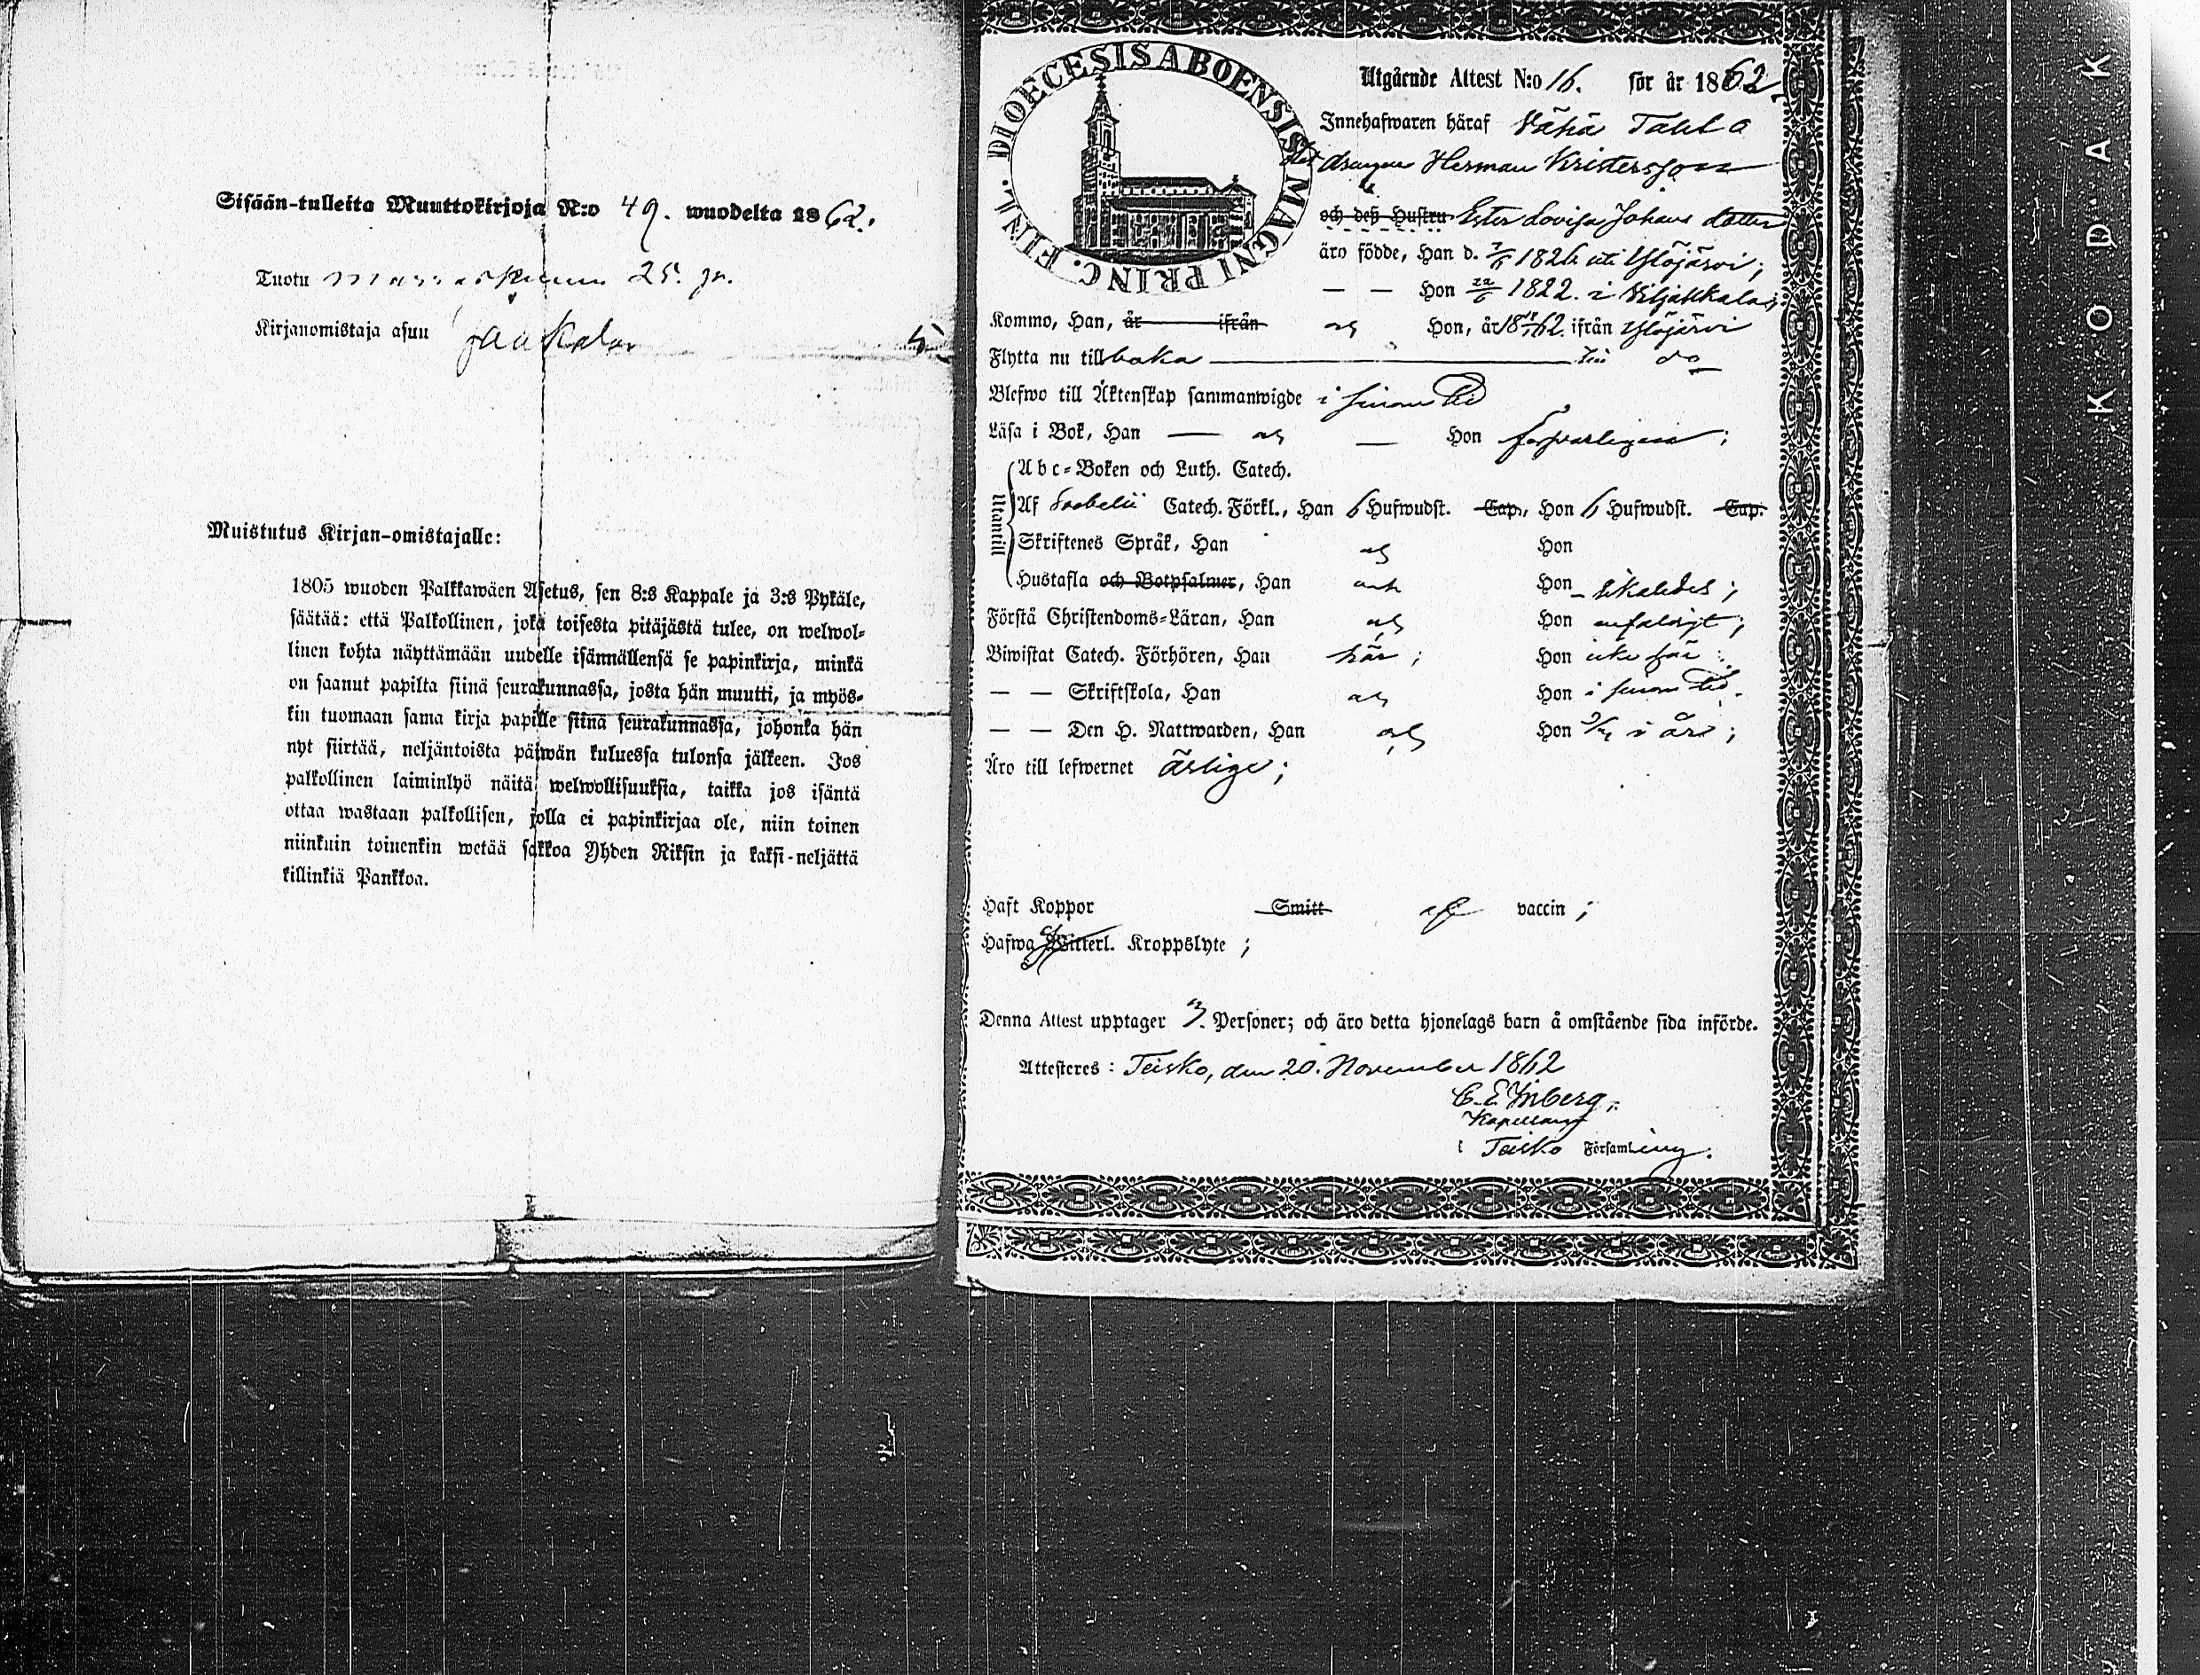 Sisään-tulleita Muuttokirjoja N:o 49. wuodelta 1862.
Tuotu Marraskuun 25. p.
Kirjanomistaja asuu
Muistutus Kirjan-omistajalle:
1805 wuoden Palkkawäen Asetus, sen 8:s Kappale ja 3:s Pykäle,
säätää: että Palkollinen, joka toisesta pitäjästä tulee, on welwol-
linen kohta näyttämään uudelle isännällensä se papinkirja, minkä
on saanut papilta siinä seurakunnassa, josta hän muutti, ja myös-
kin tuomaan sama kirja papille siinä seurakunnassa, johonka hän
nyt siirtää, neljäntoista päiwän kuluessa tulonsa jälkeen. Jos
palkollinen laiminlyö näitä welwollisuuksia, taikka jos isäntä
ottaa wastaan palkollisen, jolla ei papinkirjaa ole, niin toinen
niinkuin toinenkin wetää sakkoa Yhden Riksin ja kaksi-neljättä
killinkiä Pankkoa.
DIOECESIS ABOENSIS MAGNI PRINC. FINL.
Utgående Attest N:o 16. för år 1862
Innehafwaren häraf Vähä Takala
drängen Herman Kristersson
och deß Hustru Ester Lovisa Johans dotter
äro födde, Han d. 1826 uti Ylöjärvi;
— — Hon 22/6 1822. i Viljakkala;
Kommo, Han, år ifrån och Hon, år 1862. ifrån Ylöjärvi
Flytta nu tillbaka till do
Blefwo till Äktenskap sammanwigde i sinom tid
Läsa i Bok, Han — och — Hon försvarligen;
Utantill
Abc-Boken och Luth. Catech.
Af Svebelii Catech. Förkl., Han 6 Hufwudst. Cap., Hon 6 Hufwudst. Cap.
Skriftenes Språk, Han och Hon
Hustafla och Botpsalmer, Han och Hon likaledes;
Förstå Christendoms-Läran, Han och Hon enfaldigt;
Biwistat Catech. Förhören, Han här; Hon icke här;
— — Skriftskola, Han och Hon i sinom tid.
— — Den H. Nattwarden, Han och Hon i år;
Äro till lefwernet ärlige;
Haft Koppor Smitt af vaccin;
Hafwa Witterl. Kroppslyte;
Denna Attest upptager 3. Personer; och äro detta hjonelags barn å omstående sida införde.
Attesteres: Teisko, den 20. November 1862
Kapellan
i Teisko Församling.
KODAK